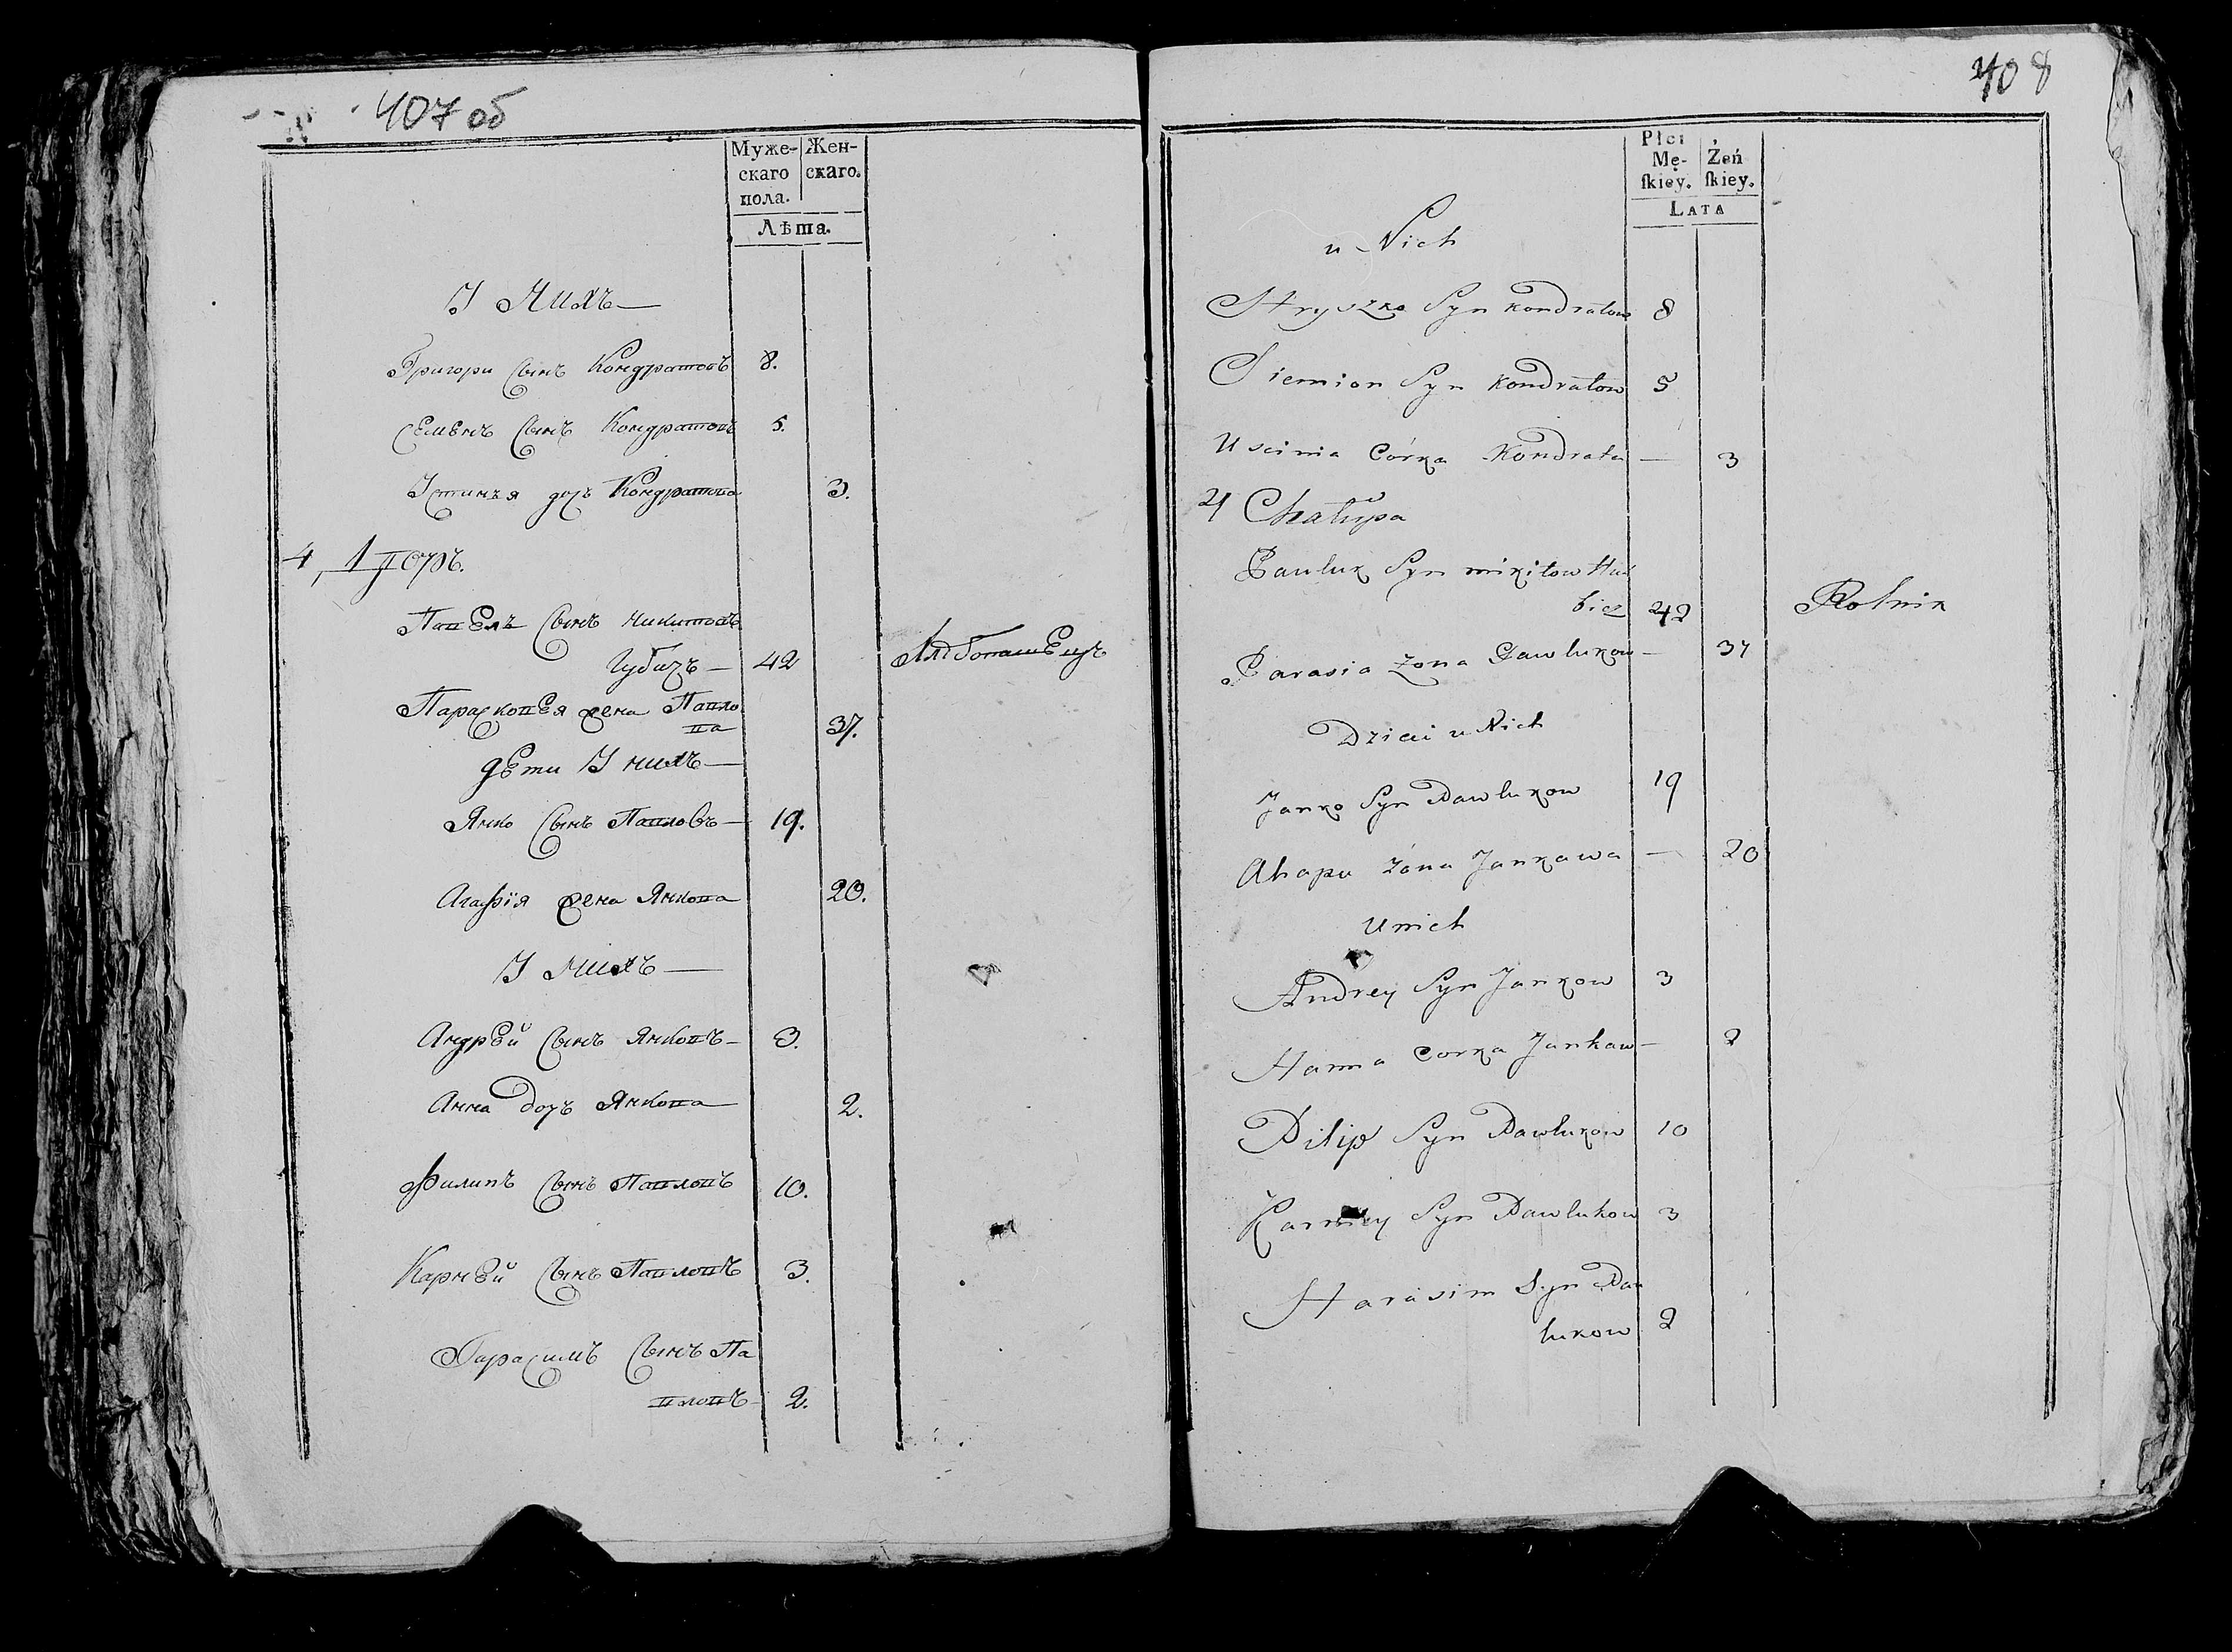 407 об
Муже-
скаго
пола.
Жен-
скаго.
Лѣта.
У Нихъ —
Григори Сынъ Кондратовъ 8.
Семѣнъ Сынъ Кондратовъ 5.
Устинья дочь Кондратова 3.
4, 1 дворъ.
Павелъ Сынъ Никитовъ
Губичъ — 42 Хлѣбопашецъ
Парасковея жена Павло
ва 37.
дѣти У нихъ —
Янко Сынъ Павловъ — 19.
Агафія жена Янкова 20.
У Нихъ —
Андрей Сынъ Янковъ — 3.
Анна дочь Янкова 2.
Филипъ Сынъ Павловъ 10.
Карнѣй Сынъ Павловъ 3.
Гарасимъ Сынъ Па
вловъ 2.
408
Płci
Mę-
ſkiey.
Żeń
ſkiey.
LATA
u Nich
Hryszko Syn Kondratow 8
Siemion Syn Kondratow 5
Uscinia Córka Kondrata — 3
4 Chałupa
Pawluk Syn mikitow Hu
bicz 42 Rolnik
Parasia Żona Pawlukow — 37
Dzieci u Nich
Janko Syn Pawlukow 19
Ahapa Żona Jankawa — 20
U nich
Andrey Syn Jankow 3
Hanna Corka Jankaw — 2
Pilip Syn Pawlukow 10
Karniey Syn Pawlukow 3
Harasim Syn Paw
lukow 2